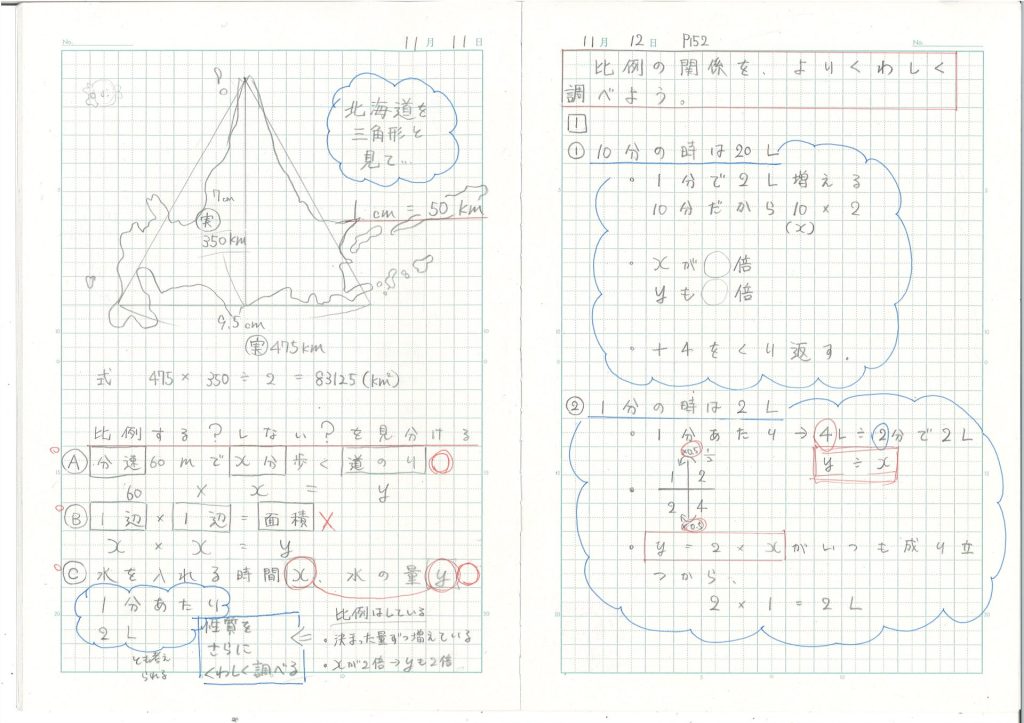 No.
11月11日
北海道を
三角形と
見て…
1cm = 50km
7cm
実
350km
9.5cm
実 475km
式 475 × 350 ÷ 2 = 83125 (km²)
比例する?しない?を見分ける
A 分速60mでx分歩く道のり○
60 × x = y
B 1辺 × 1辺 = 面積 ×
x × x = y
C 水を入れる時間x、水の量y○
1分あたり
2L
とも考え
られる
性質を
さらに
くわしく調べる
⇐
比例はしている
・決まった量ずつ増えている
・xが2倍→yも2倍
11月12日 P152
No.
比例の関係を、よりくわしく
調べよう。
1
① 10分の時は20L
・1分で2L増える
10分だから10×2
(x)
・xが○倍
yも○倍
・+4をくり返す.
② 1分の時は2L
・1分あたり→4L÷2分で2L
y ÷ x
×0.5 1/2
1 2
2 4
×0.5
・y = 2 × xがいつも成り立
つから、
2 × 1 = 2L